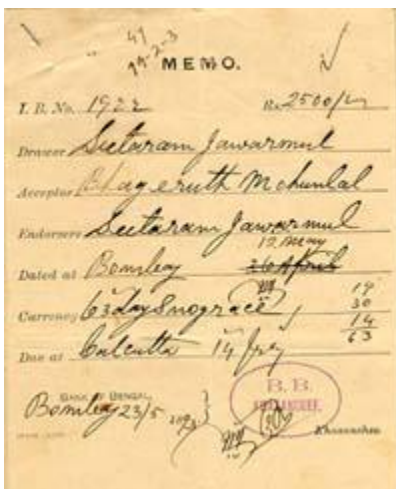 47
MEMO.
I. B. No. 1922 Rs. 2500/-
Drawer Seetaram Jawarmul
Acceptor Bhageruth Mohunlal
Endorsers Seetaram Jawarmul
12 May
Dated at Bombay 26 April
19
Currency 63 days no grace 30
14
63
Due at Calcutta 14
BANK OF BENGAL,
B. B.
Bombay 23/5
Khazanchee